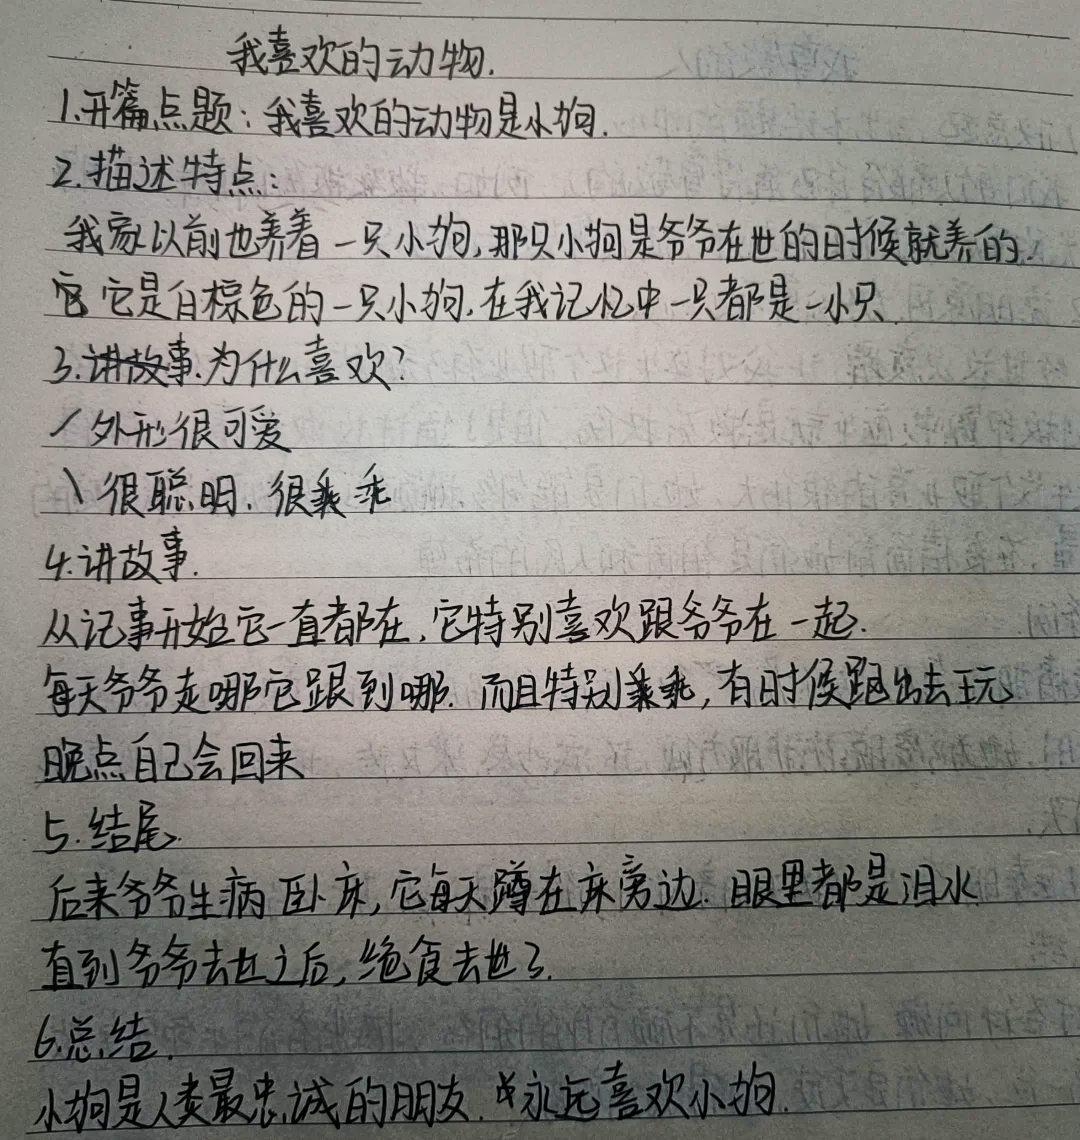 我喜欢的动物.
1.开篇点题:我喜欢的动物是小狗.
2.描述特点:
我家以前也养着一只小狗,那只小狗是爷爷在世的时候就养的.
它是白棕色的一只小狗.在我记忆中一只都是一小只.
3.讲故事.为什么喜欢?
/外形很可爱
\很聪明.很乖乖
4.讲故事.
从记事开始它一直都在,它特别喜欢跟爷爷在一起.
每天爷爷走哪它跟到哪.而且特别乖乖,有时候跑出去玩
晚点自己会回来
5.结尾.
后来爷爷生病卧床,它每天蹲在床旁边.眼里都是泪水
直到爷爷去世之后,绝食去世了.
6.总结.
小狗是人类最忠诚的朋友.永远喜欢小狗.